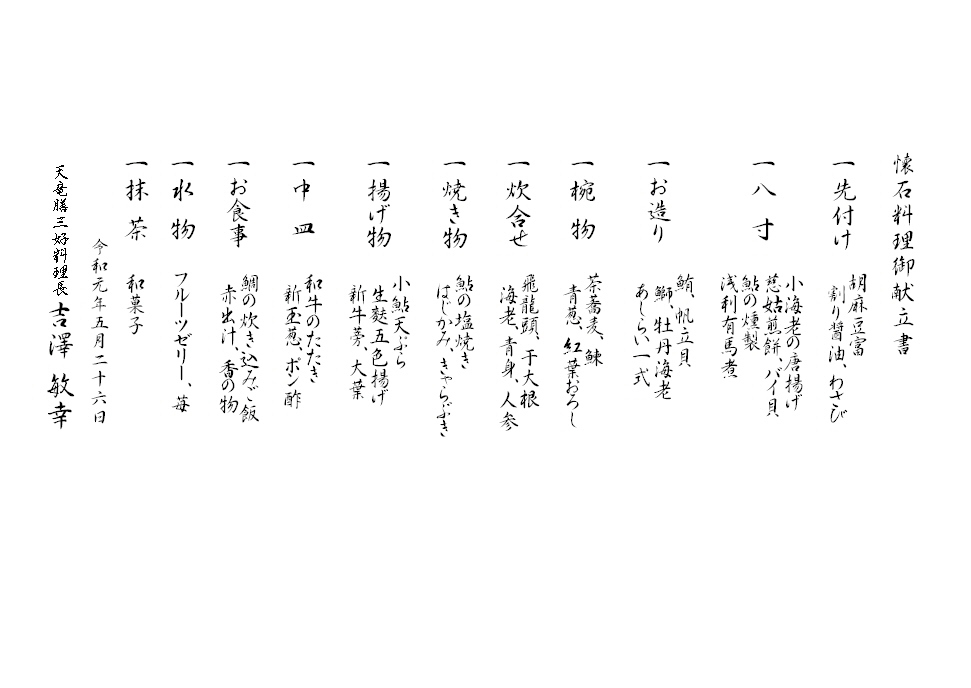 懐石料理御献立書
一 先付け
胡麻豆富
割り醤油、わさび
一 八寸
小海老の唐揚げ
慈姑煎餅、バイ貝
鮎の燻製
浅利有馬煮
一 お造り
鮪、帆立貝
鰤、牡丹海老
あしらい一式
一 椀物
茶蕎麦、鰊
青葱、紅葉おろし
一 炊合せ
飛龍頭、干大根
海老、青身、人参
一 焼き物
鮎の塩焼き
はじかみ、きゃらぶき
一 揚げ物
小鮎天ぷら
生麩五色揚げ
新牛蒡、大葉
一 中皿
和牛のたたき
新玉葱、ポン酢
一 お食事
鯛の炊き込みご飯
赤出汁、香の物
一 水物
フルーツゼリー、苺
一 抹茶
和菓子
令和元年五月二十六日
天竜膳三好料理長 吉澤 敏幸